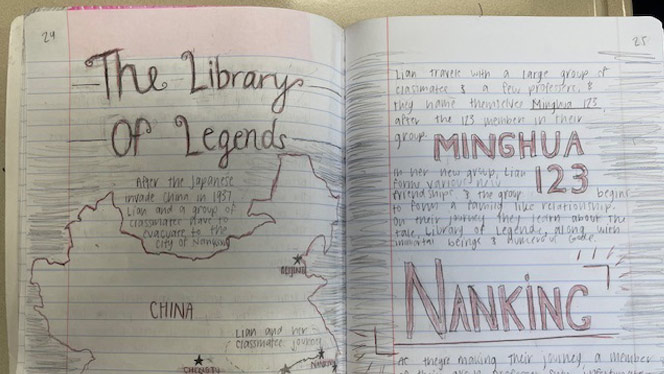 24
The Library
Of Legends
After the Japanese
invade China in 1937
Lian and a group of
classmates have to
evacuate to the
city of Nanking
BEIJING
CHINA
Lian and her
classmates journey
CHENGTU
NANKING
25
Lian travels with a large group of
classmates & a few professors, &
they name themselves Minghua 123,
after the 123 member in their
group.
MINGHUA
123
In her new group, Lian
forms various new
friendships & the group begins
to form a family like relationship.
On their journey they learn about the
tale, Library of Legends, along with
immortal beings &
NANKING
As theyre making their journey, a member
of their group